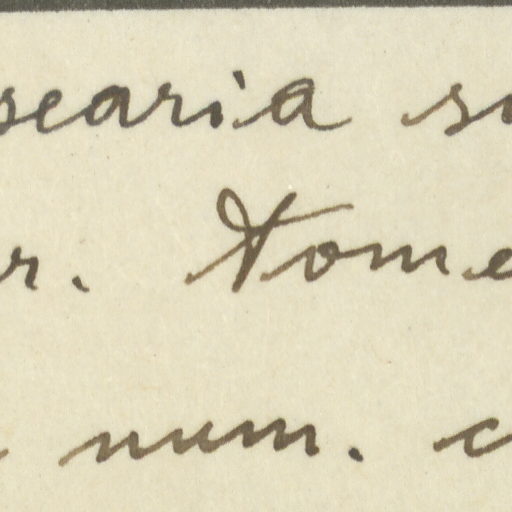 searia s
r. Tome
num. c